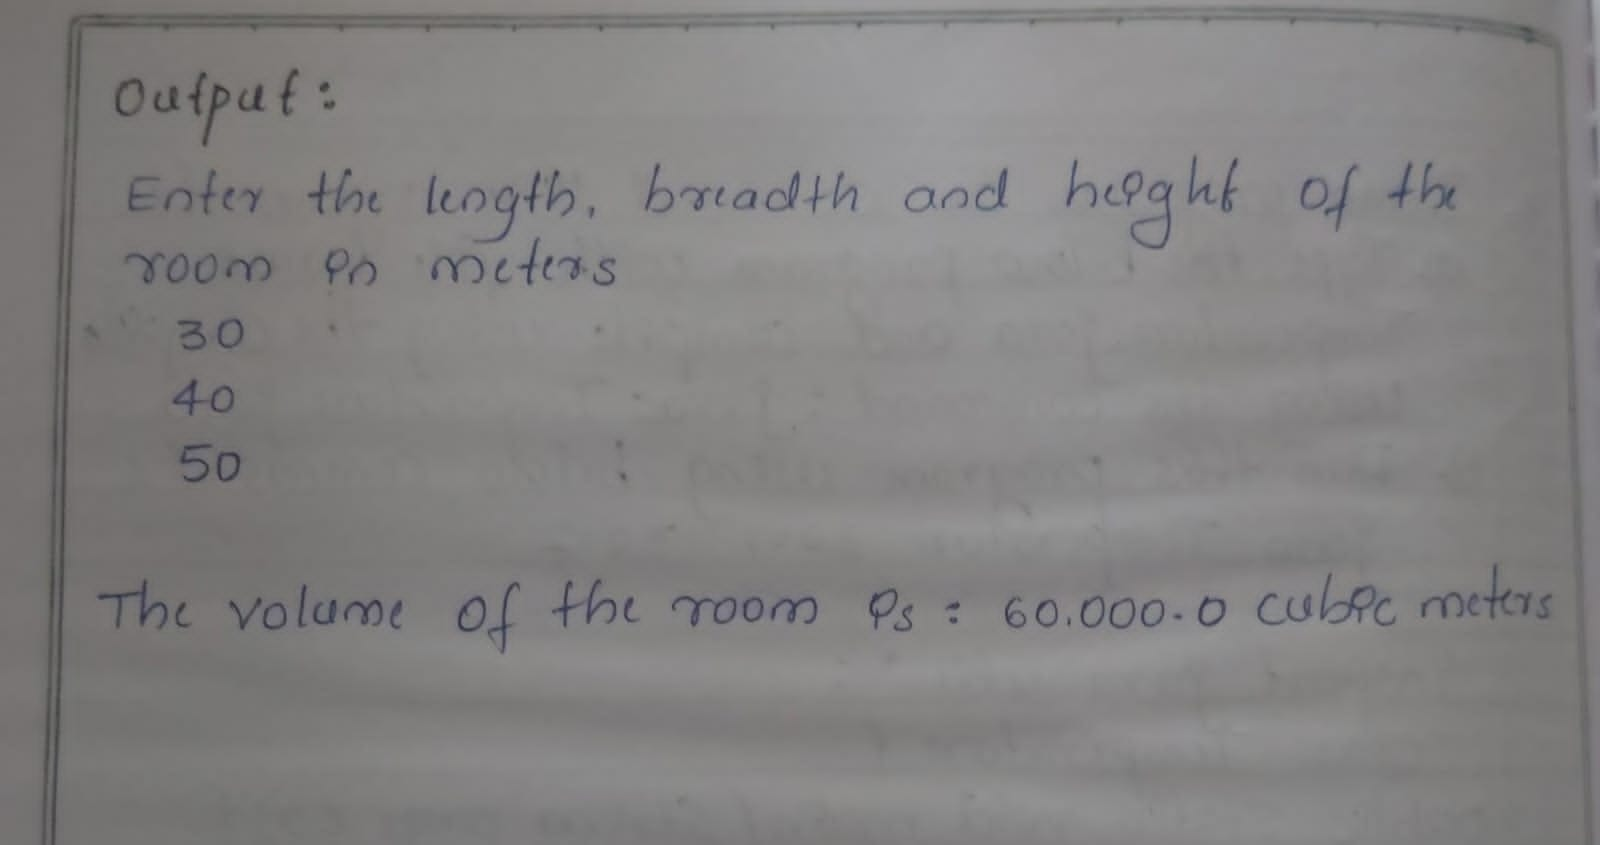 Output:
Enter the length, breadth and height of the
room in meters
30
40
50
The volume of the room is : 60.000.0 cubic meters